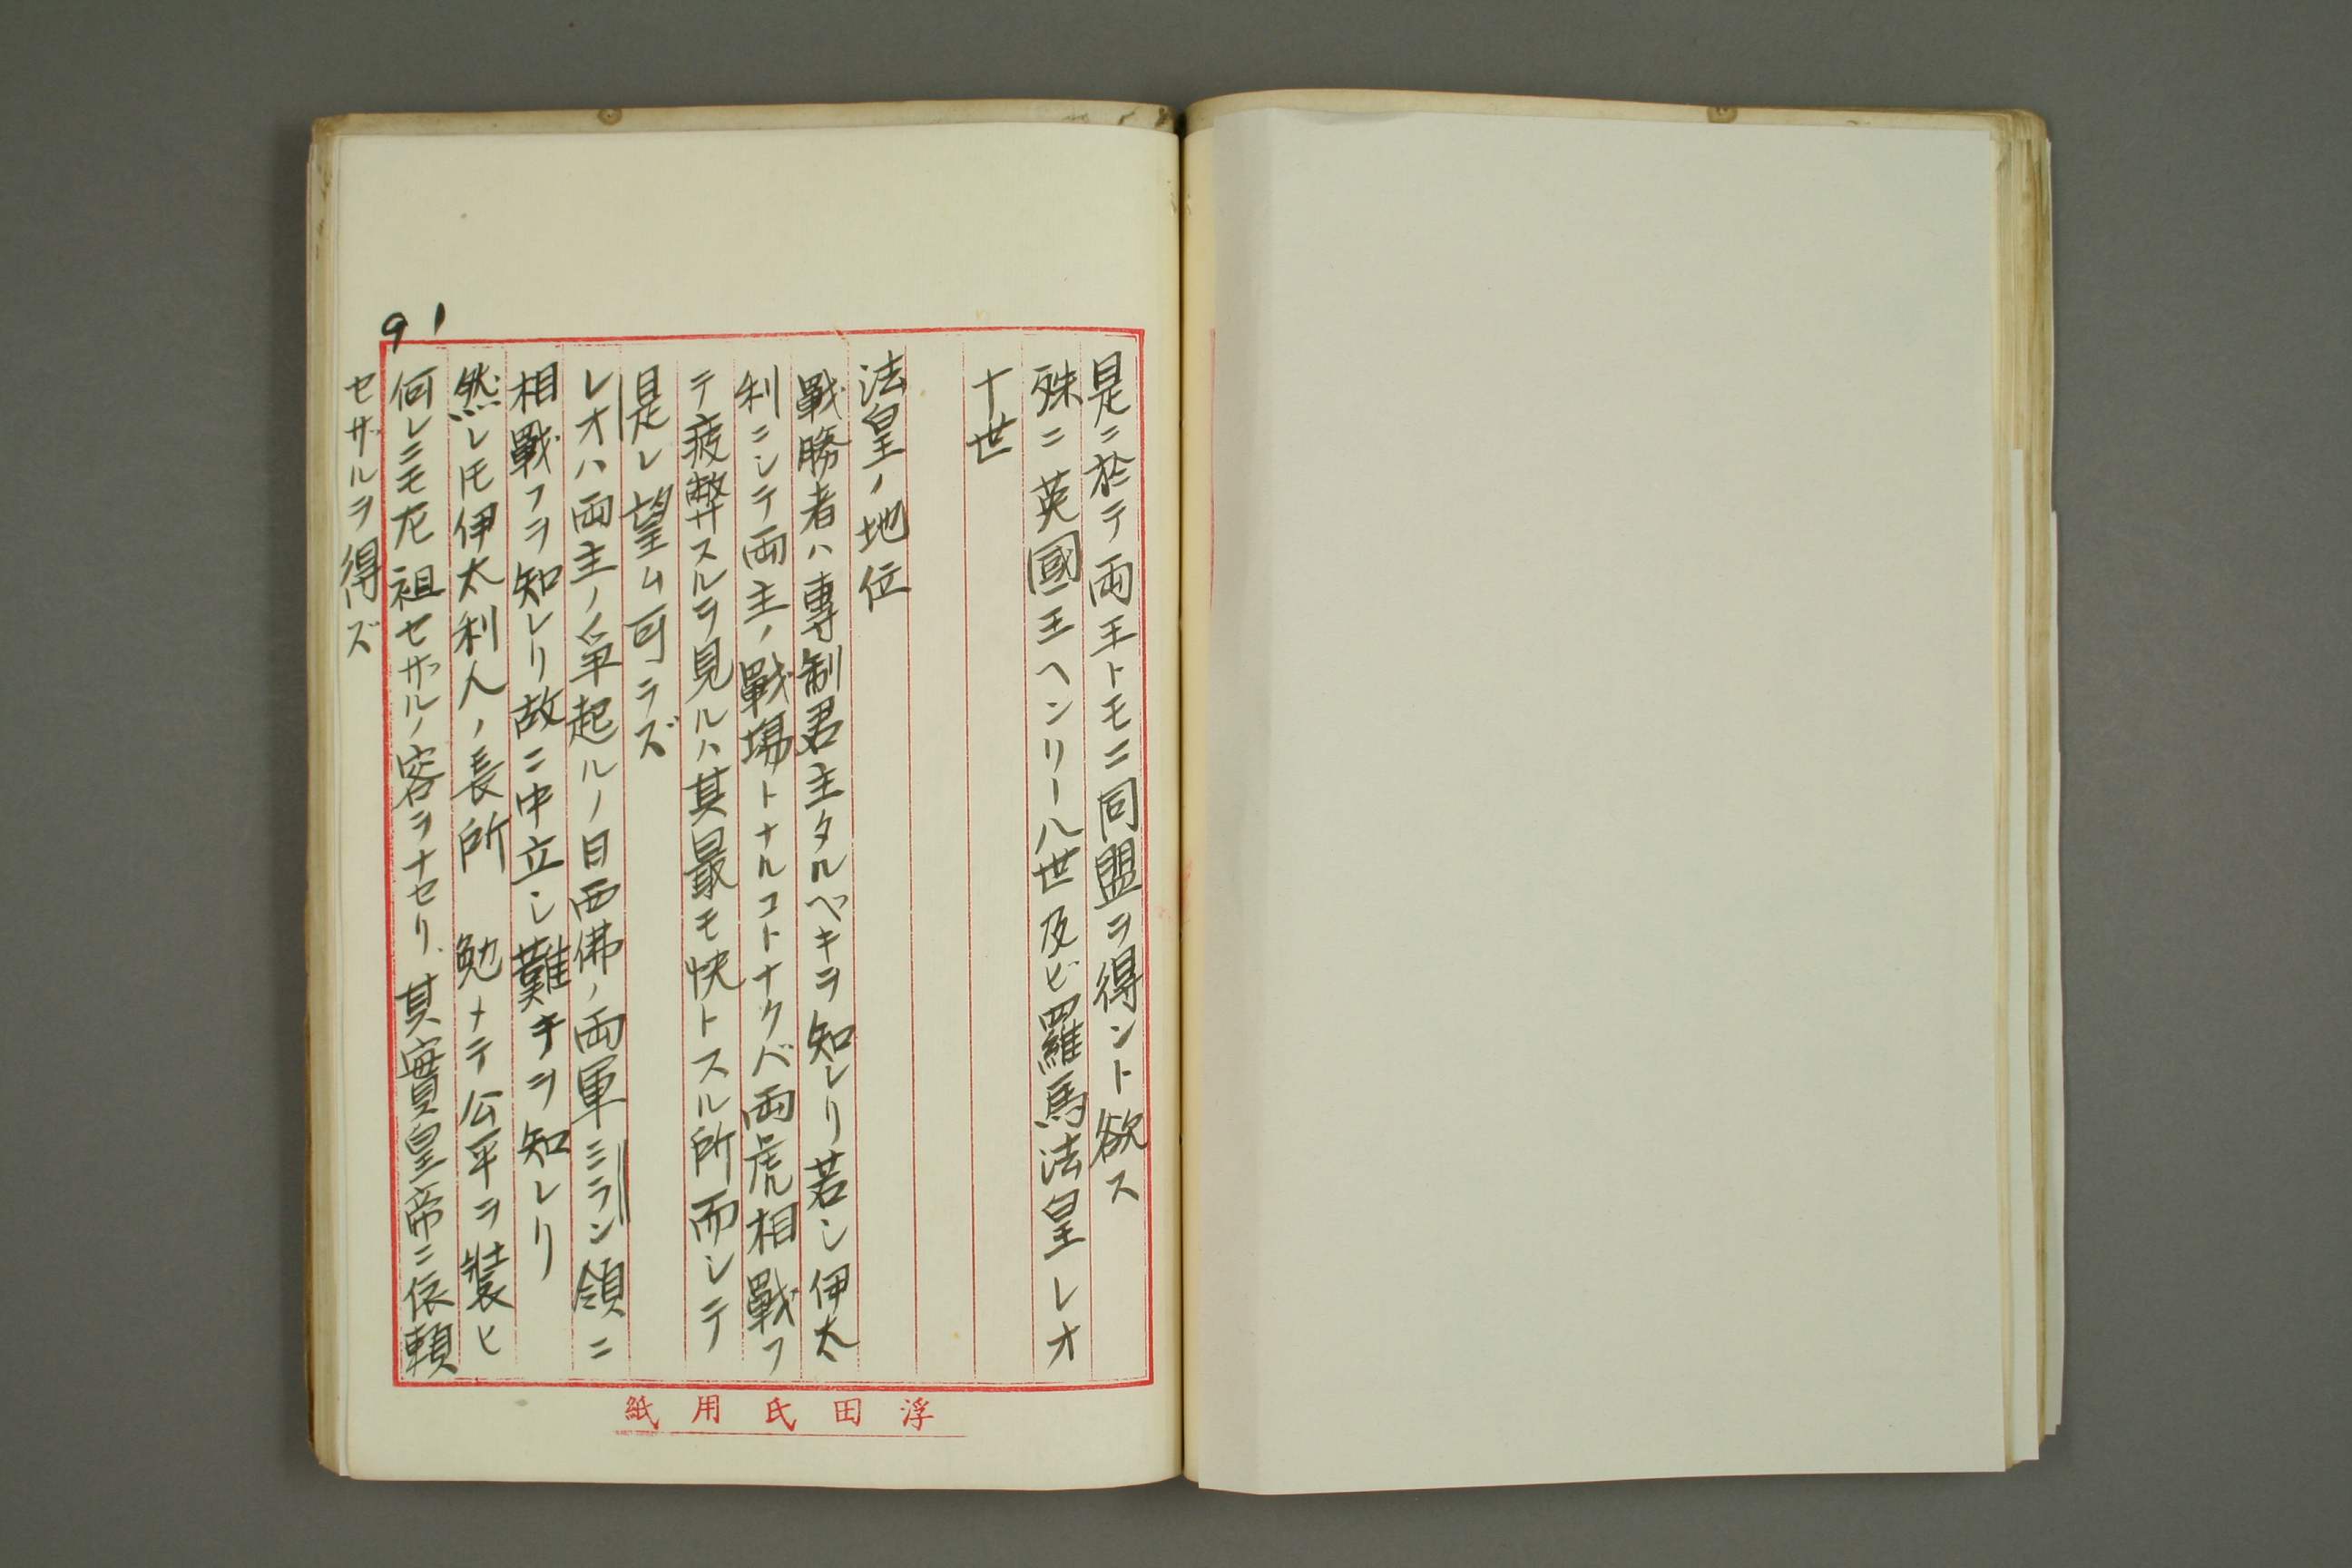 是ニ於テ両王トモニ同盟ヲ得ント欲ス
殊ニ英國王ヘンリー八世及ビ羅馬法皇レオ
十世
法皇ノ地位
戰勝者ハ專制君主タルベキヲ知レリ若シ伊太
利ニシテ両主ノ戰場トナルコトナクバ両虎相戰フ
テ疲弊スルヲ見ルハ其最モ快トスル所而シテ
是レ望ム可ラズ
レオハ両主ノ爭起ルノ日西佛ノ両軍ミラン領ニ
相戰フヲ知レリ故ニ中立シ難キヲ知レリ
然レ𪜈伊太利人ノ長所 勉メテ公平ヲ裝ヒ
何レニモ左袒セザルノ容ヲナセリ、其實皇帝ニ依頼
セザルヲ得ズ
91
浮田氏用紙